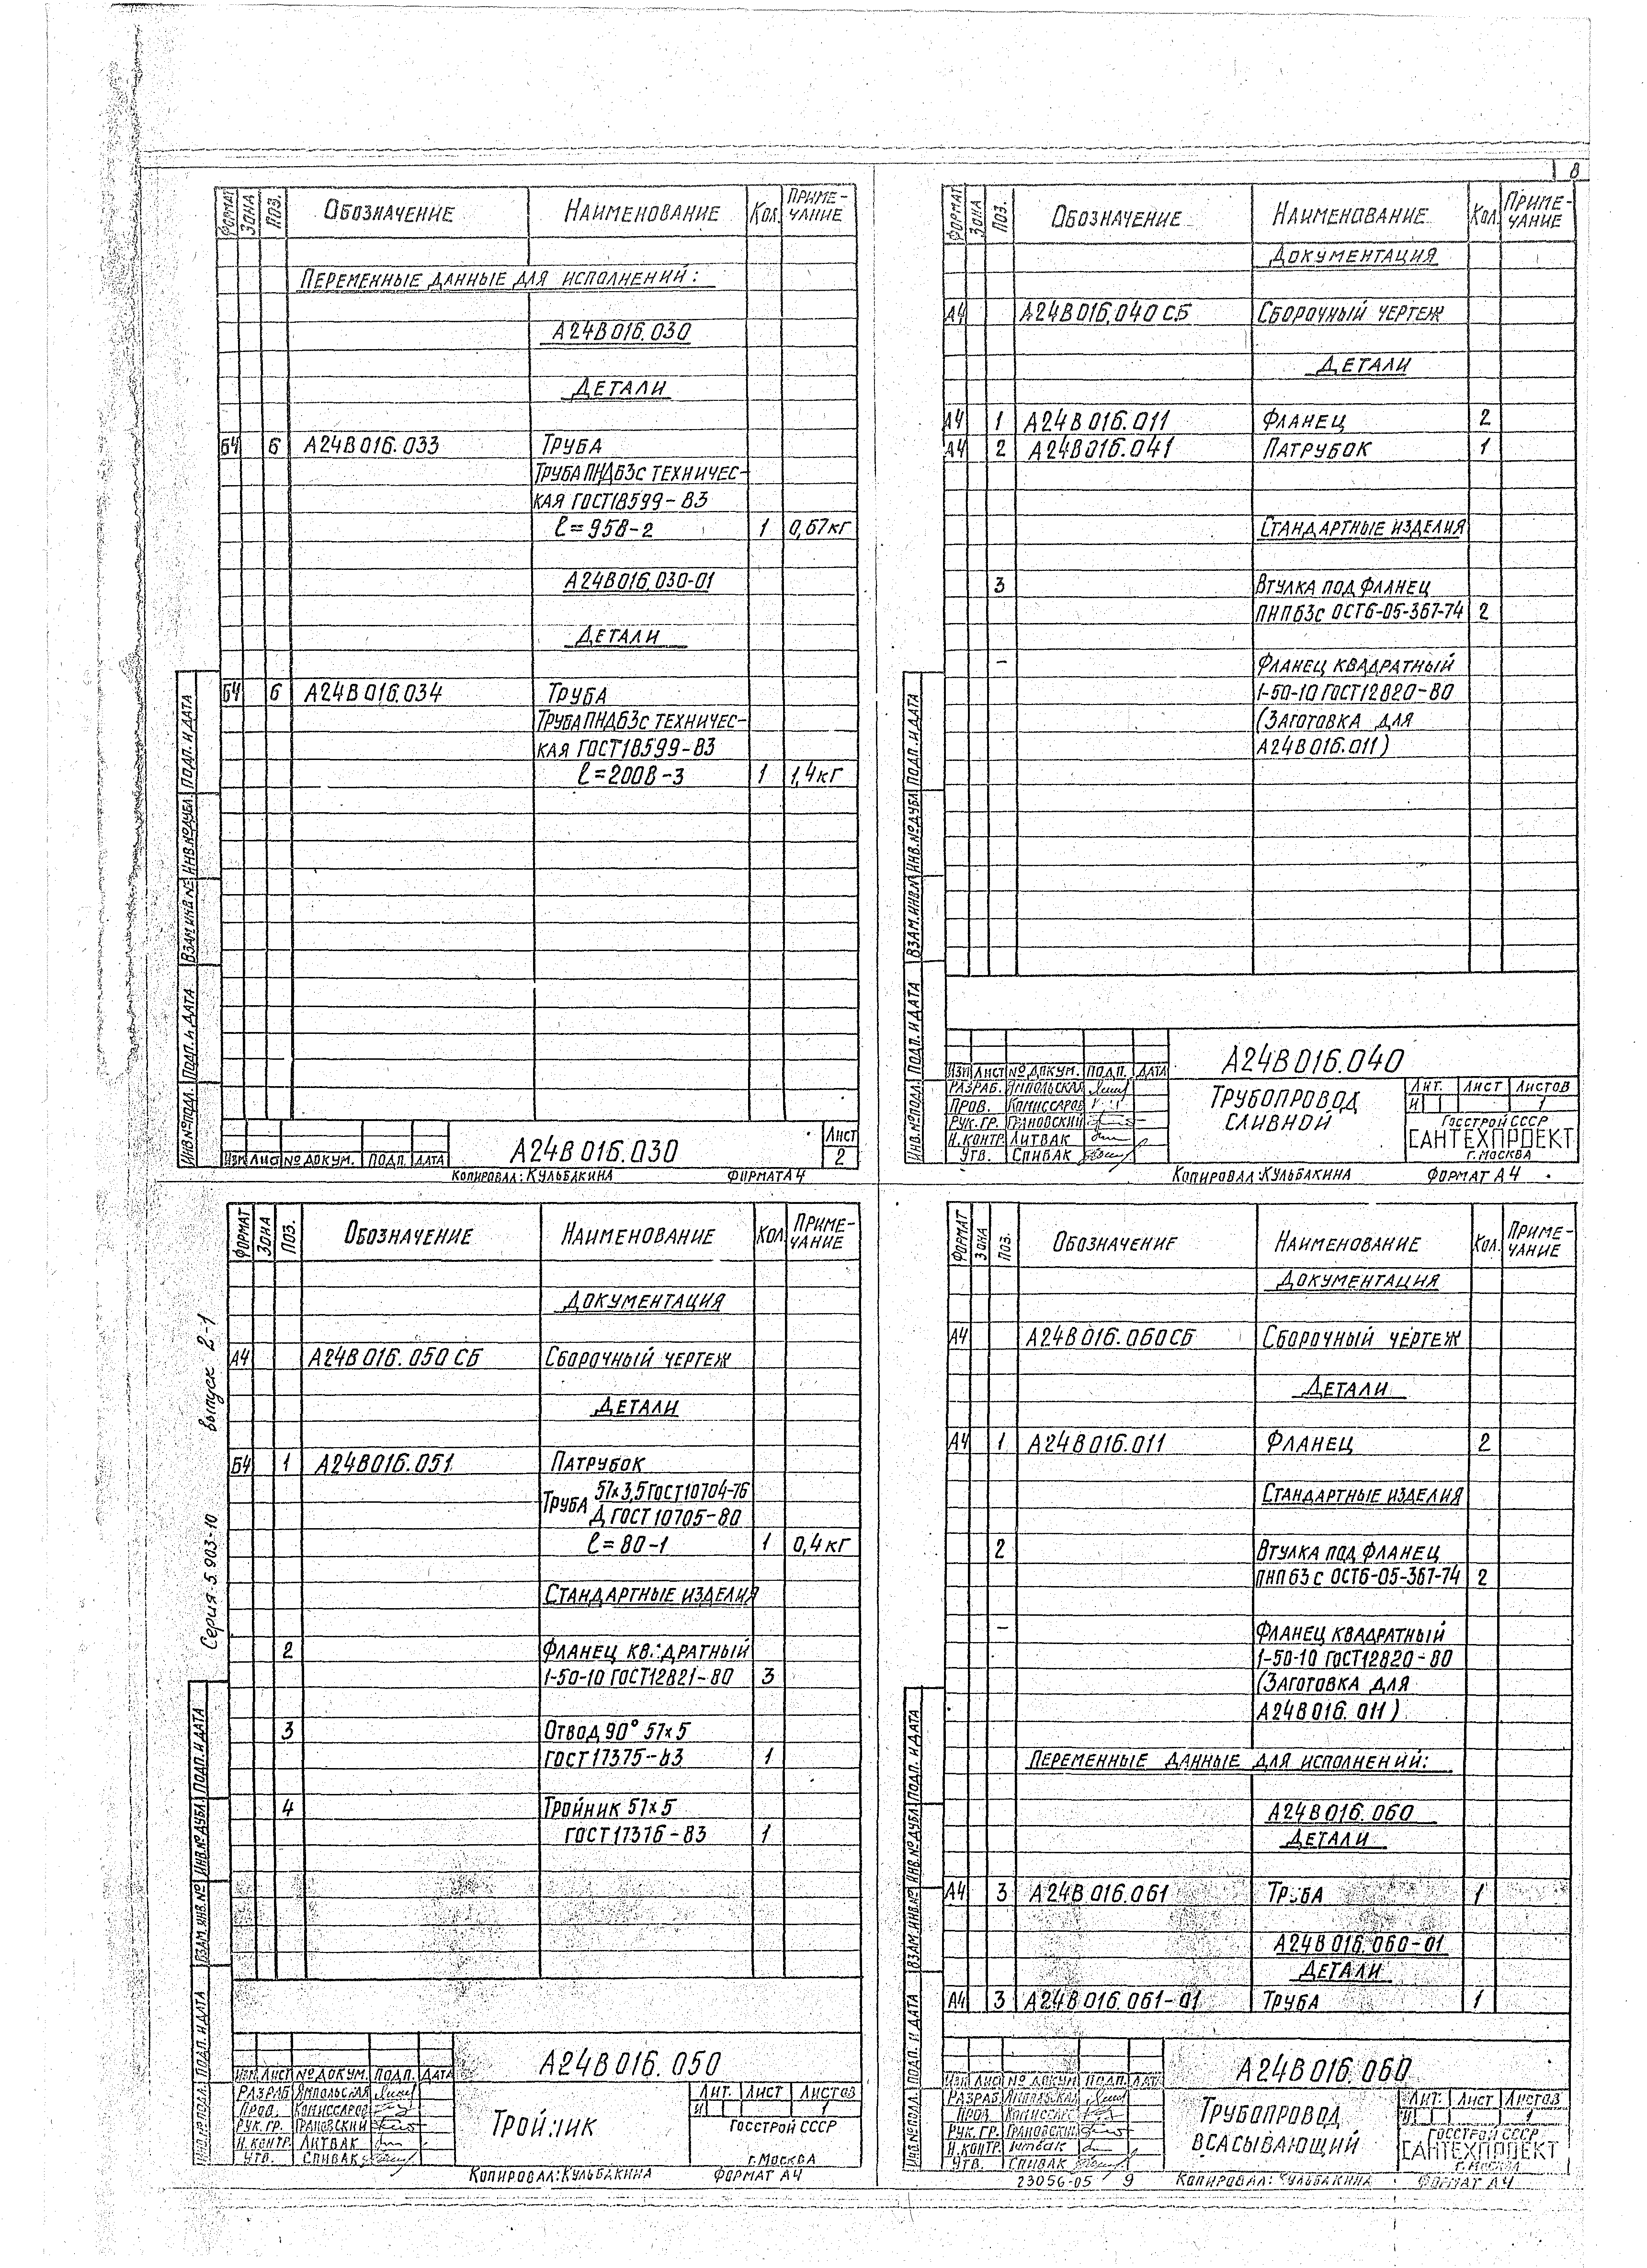 8
ФОРМАТ ЗОНА ПОЗ. ОБОЗНАЧЕНИЕ НАИМЕНОВАНИЕ КОЛ. ПРИМЕ-
ЧАНИЕ
ПЕРЕМЕННЫЕ ДАННЫЕ ДЛЯ ИСПОЛНЕНИЙ:
А24В016.030
ДЕТАЛИ
Б4 6 А24В016.033 ТРУБА
ТРУБА ПНД63С ТЕХНИЧЕС-
КАЯ ГОСТ18599-83
ℓ=958-2 1 0,67кг
А24В016.030-01
ДЕТАЛИ
Б4 6 А24В016.034 ТРУБА
ТРУБА ПНД63С ТЕХНИЧЕС-
КАЯ ГОСТ18599-83
ℓ=2008-3 1 1,4кг
ИНВ.№ПОДЛ. ПОДП. И ДАТА ВЗАМ.ИНВ.№ ИНВ.№ДУБЛ. ПОДП. И ДАТА
ИЗМ ЛИСТ №ДОКУМ. ПОДП. ДАТА
А24В016.030
ЛИСТ
2
КОПИРОВАЛ: КУЛЬБАКИНА ФОРМАТ А4
ФОРМАТ ЗОНА ПОЗ. ОБОЗНАЧЕНИЕ НАИМЕНОВАНИЕ КОЛ. ПРИМЕ-
ЧАНИЕ
ДОКУМЕНТАЦИЯ
А4 А24В016.040СБ СБОРОЧНЫЙ ЧЕРТЕЖ
ДЕТАЛИ
А4 1 А24В016.011 ФЛАНЕЦ 2
А4 2 А24В016.041 ПАТРУБОК 1
СТАНДАРТНЫЕ ИЗДЕЛИЯ
3 ВТУЛКА ПОД ФЛАНЕЦ
ПНП63С ОСТ6-05-367-74 2
- ФЛАНЕЦ КВАДРАТНЫЙ
1-50-10 ГОСТ12820-80
(ЗАГОТОВКА ДЛЯ
А24В016.011)
ИНВ.№ПОДЛ. ПОДП. И ДАТА ВЗАМ.ИНВ.№ ИНВ.№ДУБЛ. ПОДП. И ДАТА
А24В016.040
ИЗМ ЛИСТ №ДОКУМ. ПОДП. ДАТА
РАЗРАБ. ЯМПОЛЬСКАЯ
ПРОВ. КОМИССАРОВ
РУК.ГР. ГРАНОВСКИЙ
Н.КОНТР. ЛИТВАК
УТВ. СПИВАК
ТРУБОПРОВОД
СЛИВНОЙ
ЛИТ. ЛИСТ ЛИСТОВ
И 1
ГОССТРОЙ СССР
САНТЕХПРОЕКТ
Г.МОСКВА
КОПИРОВАЛ: КУЛЬБАКИНА ФОРМАТ А4
Серия 5.903-10 выпуск 2-1
ФОРМАТ ЗОНА ПОЗ. ОБОЗНАЧЕНИЕ НАИМЕНОВАНИЕ КОЛ ПРИМЕ-
ЧАНИЕ
ДОКУМЕНТАЦИЯ
А4 А24В016.050СБ СБОРОЧНЫЙ ЧЕРТЕЖ
ДЕТАЛИ
Б4 1 А24В016.051 ПАТРУБОК
ТРУБА 57х3,5 ГОСТ10704-76
Д ГОСТ 10705-80
ℓ=80-1 1 0,4кг
СТАНДАРТНЫЕ ИЗДЕЛИЯ
2 ФЛАНЕЦ КВАДРАТНЫЙ
1-50-10 ГОСТ12821-80 3
3 ОТВОД 90° 57х5
ГОСТ17375-83 1
4 ТРОЙНИК 57х5
ГОСТ17376-83 1
ИНВ.№ПОДЛ. ПОДП. И ДАТА ВЗАМ.ИНВ.№ ИНВ.№ДУБЛ. ПОДП. И ДАТА
А24В016.050
ИЗМ ЛИСТ №ДОКУМ. ПОДП. ДАТА
РАЗРАБ ЯМПОЛЬСКАЯ
ПРОВ. КОМИССАРОВ
РУК.ГР. ГРАНОВСКИЙ
Н.КОНТР. ЛИТВАК
УТВ. СПИВАК
ТРОЙНИК
ЛИТ. ЛИСТ ЛИСТОВ
И 1
ГОССТРОЙ СССР
Г.МОСКВА
КОПИРОВАЛ: КУЛЬБАКИНА ФОРМАТ А4
ФОРМАТ ЗОНА ПОЗ. ОБОЗНАЧЕНИЕ НАИМЕНОВАНИЕ КОЛ. ПРИМЕ-
ЧАНИЕ
ДОКУМЕНТАЦИЯ
А4 А24В016.060СБ СБОРОЧНЫЙ ЧЕРТЕЖ
ДЕТАЛИ
А4 1 А24В016.011 ФЛАНЕЦ 2
СТАНДАРТНЫЕ ИЗДЕЛИЯ
2 ВТУЛКА ПОД ФЛАНЕЦ
ПНП63С ОСТ6-05-367-74 2
- ФЛАНЕЦ КВАДРАТНЫЙ
1-50-10 ГОСТ12820-80
(ЗАГОТОВКА ДЛЯ
А24В016.011)
ПЕРЕМЕННЫЕ ДАННЫЕ ДЛЯ ИСПОЛНЕНИЙ:
А24В016.060
ДЕТАЛИ
А4 3 А24В016.061 ТРУБА 1
А24В016.060-01
ДЕТАЛИ
А4 3 А24В016.061-01 ТРУБА 1
ИНВ.№ПОДЛ. ПОДП. И ДАТА ВЗАМ.ИНВ.№ ИНВ.№ДУБЛ. ПОДП. И ДАТА
А24В016.060
ИЗМ ЛИСТ №ДОКУМ ПОДП. ДАТА
РАЗРАБ ЯМПОЛЬСКАЯ
ПРОВ. КОМИССАР
РУК.ГР. ГРАНОВСКИЙ
Н.КОНТР. ЛИТВАК
УТВ. СПИВАК
ТРУБОПРОВОД
ВСАСЫВАЮЩИЙ
ЛИТ. ЛИСТ ЛИСТОВ
И 1
ГОССТРОЙ СССР
САНТЕХПРОЕКТ
Г.МОСКВА
23056-05 9 КОПИРОВАЛ: КУЛЬБАКИНА ФОРМАТ А4